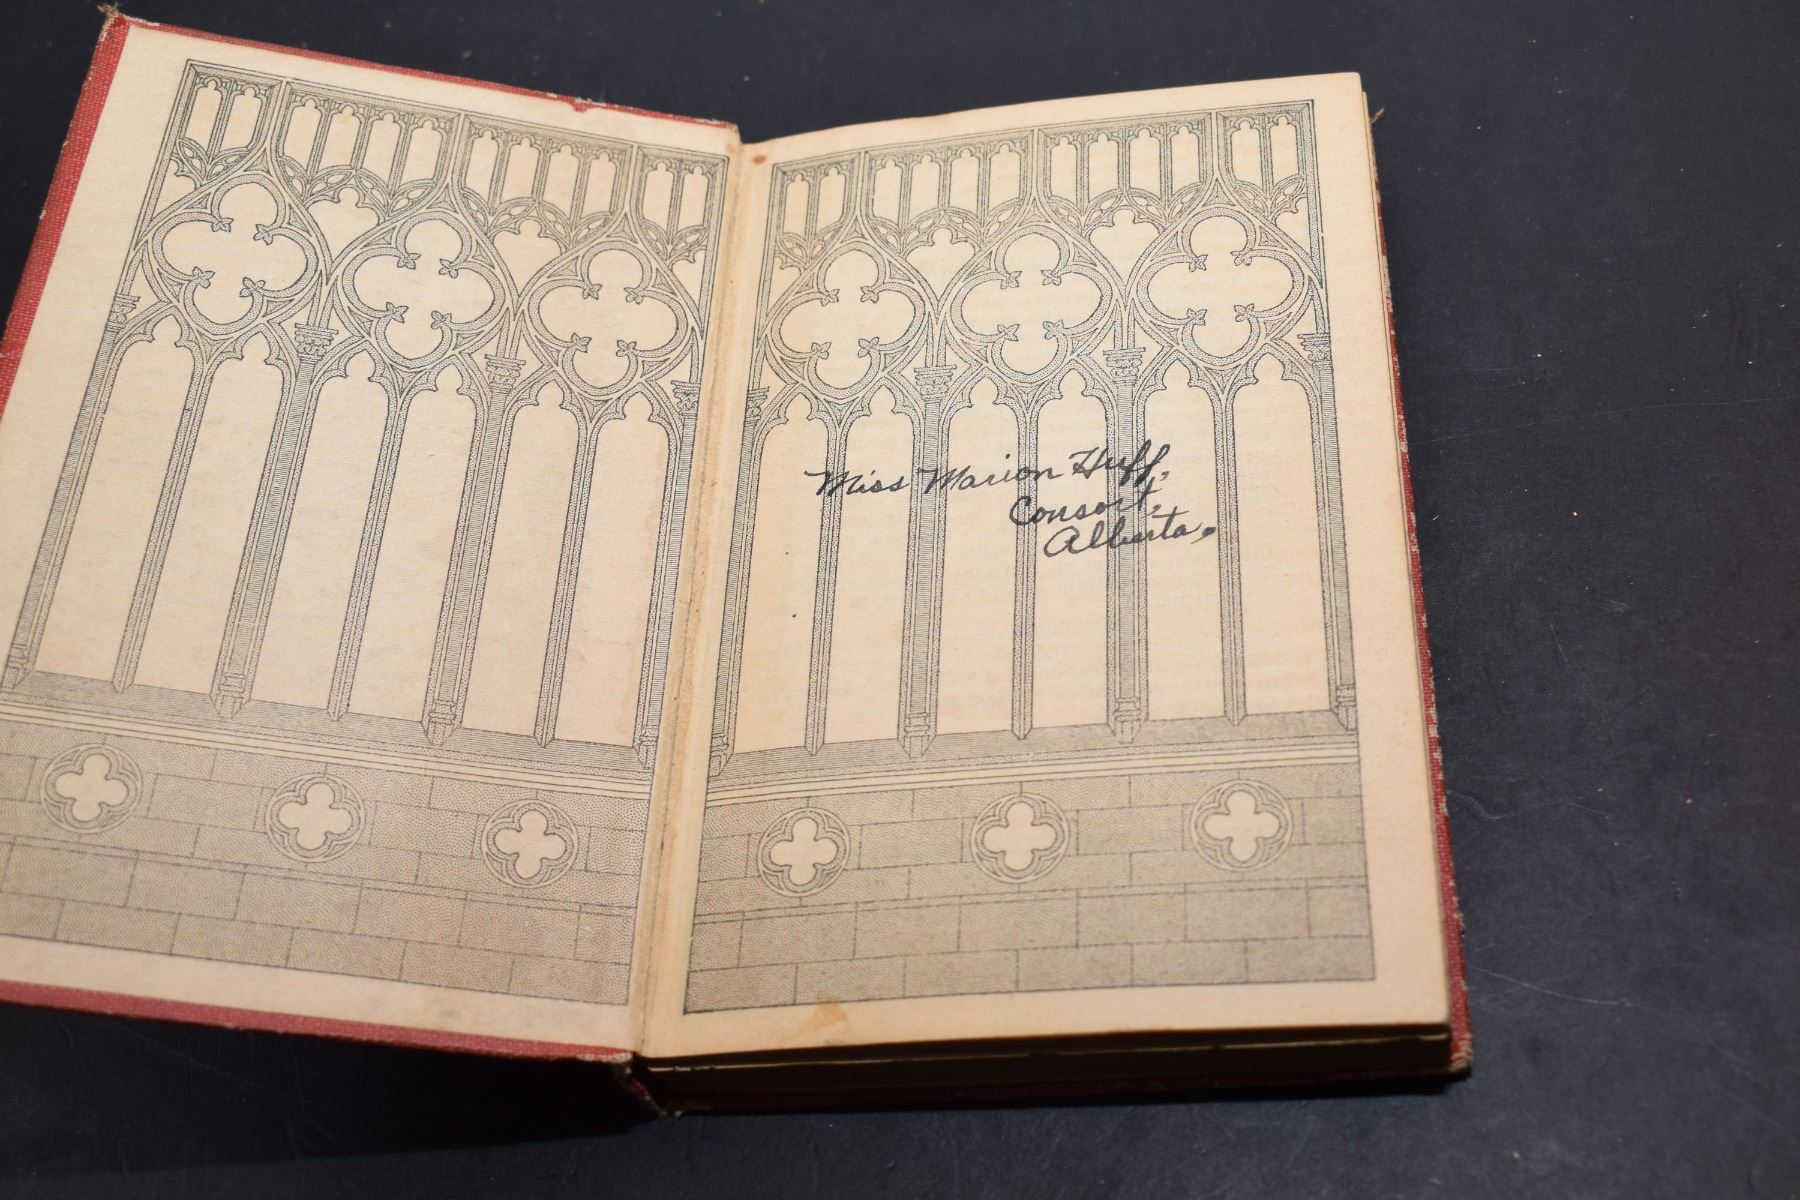 Miss Marion Huff,
Consort,
Alberta.